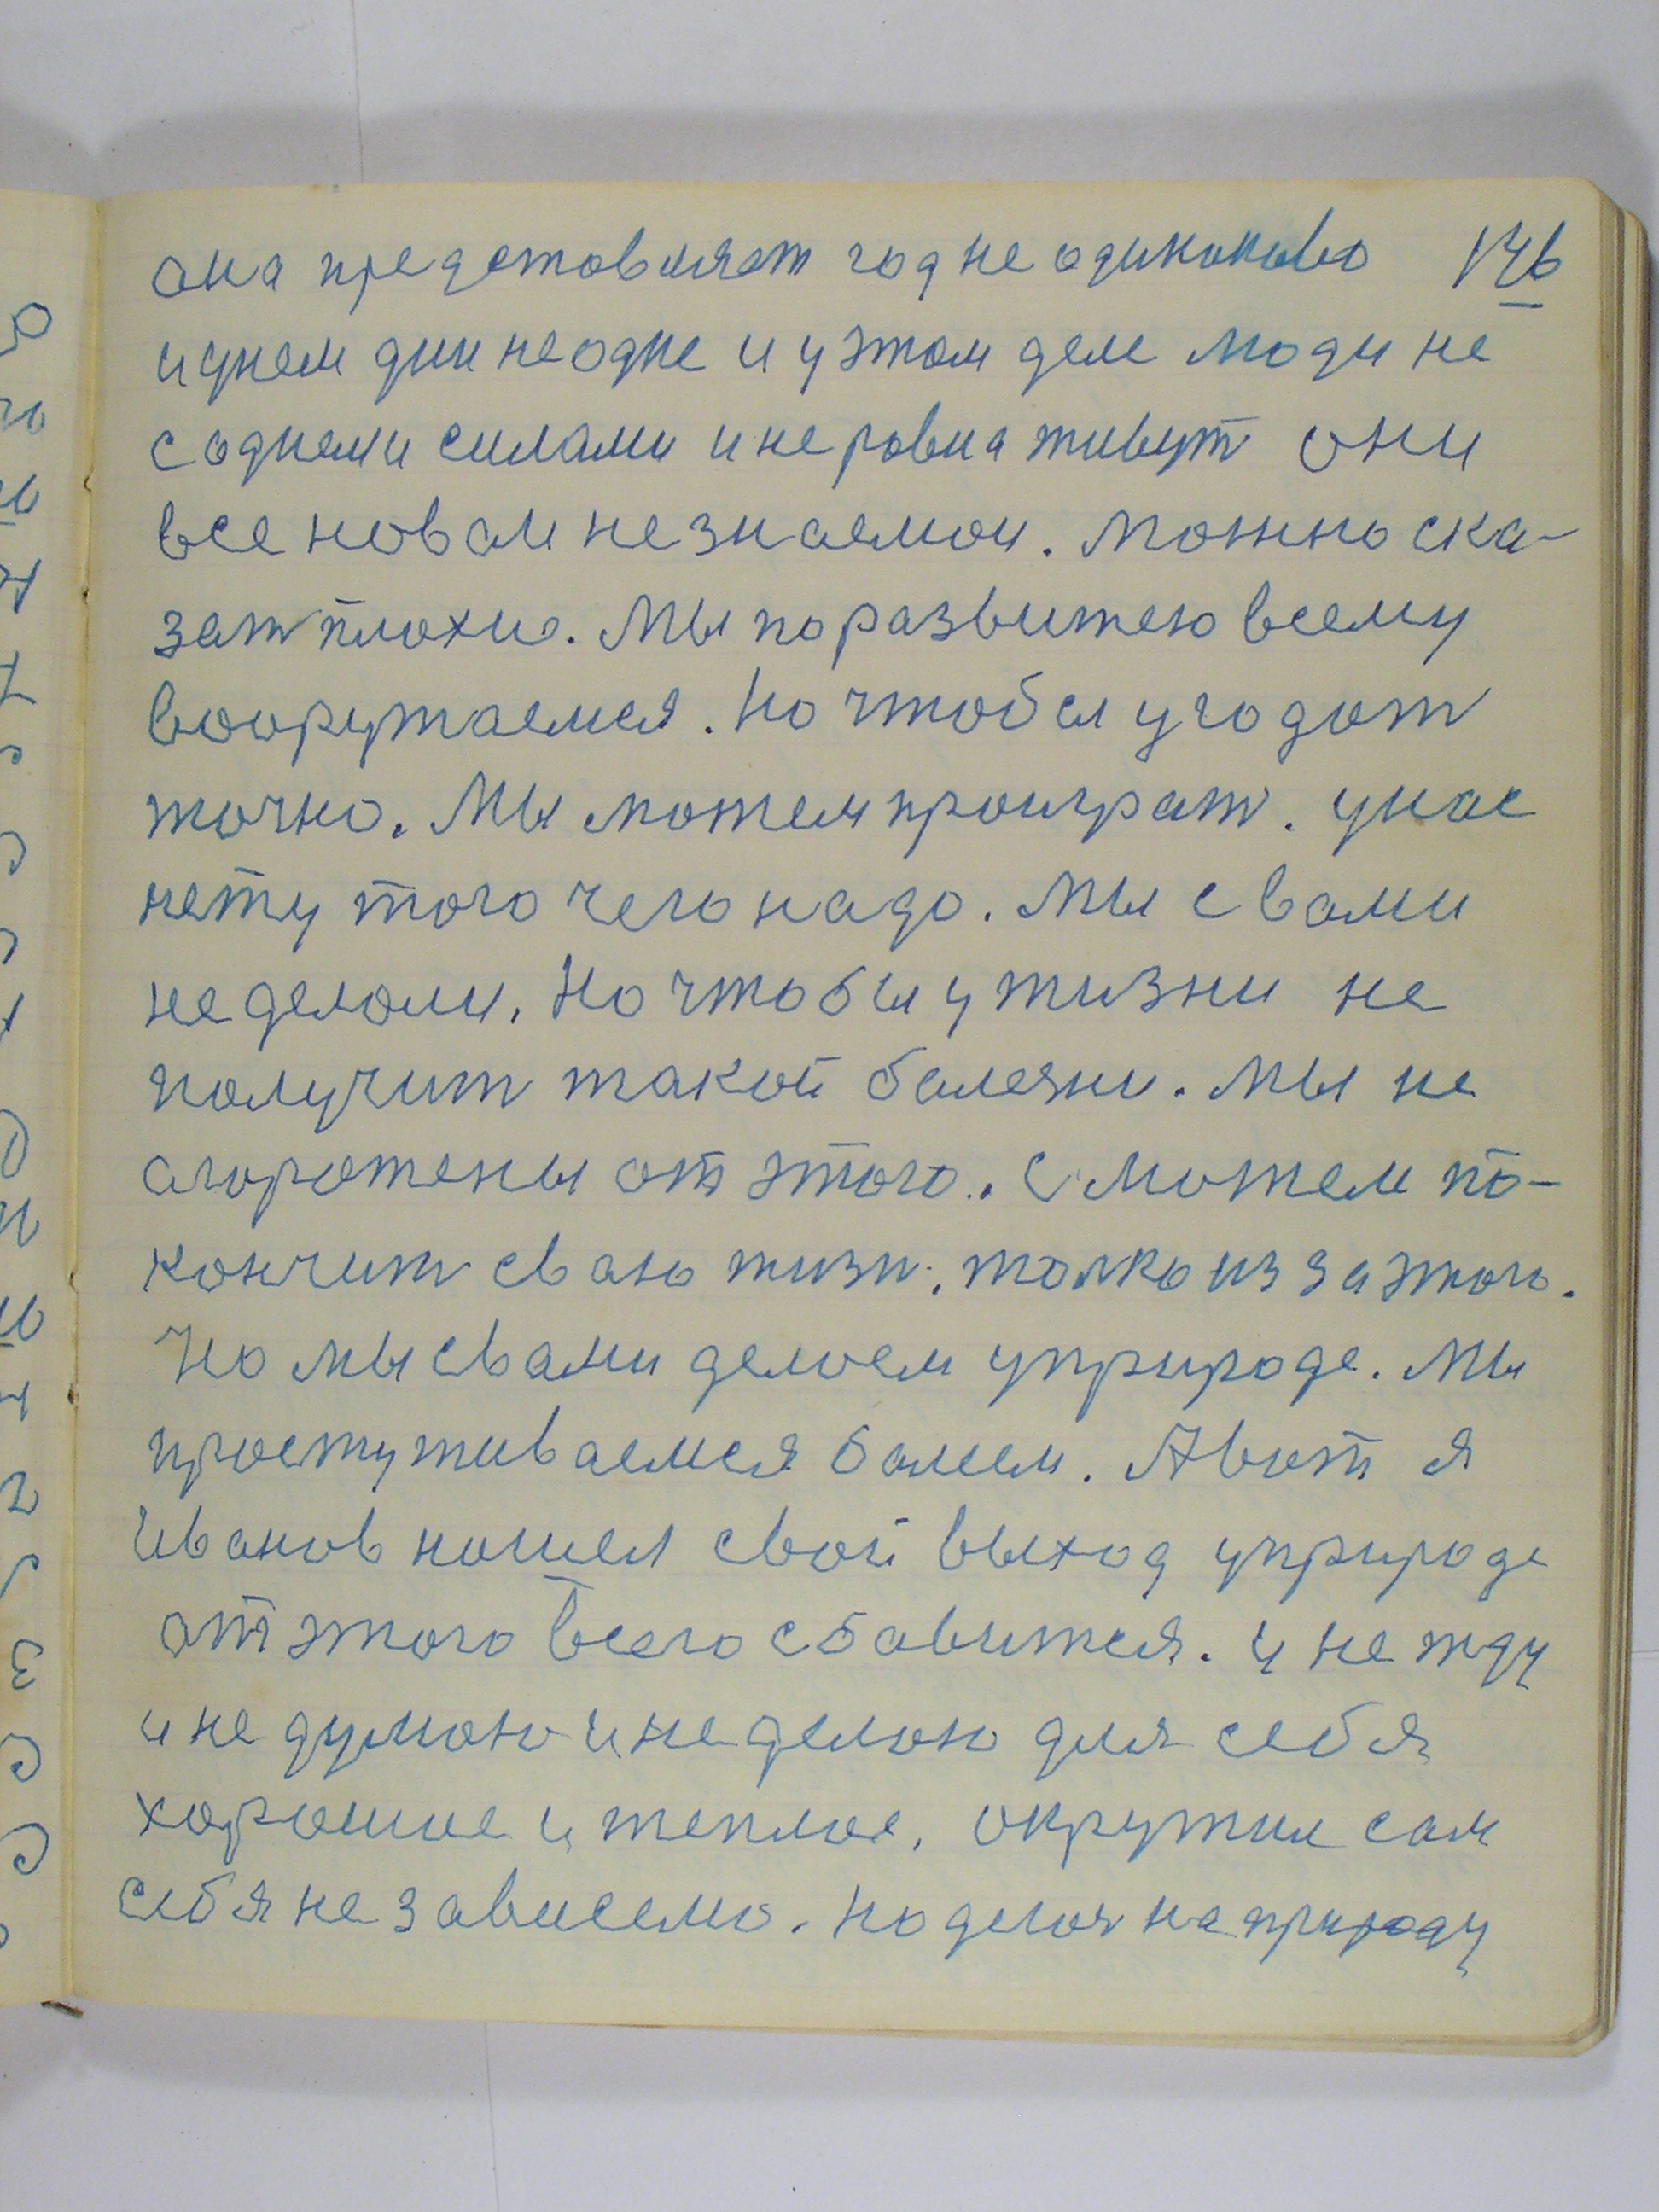 она предстовляет год не одиноково 146
и унем дни не одне и у этом деле люди не
с однеми силами и не ровна живут они
все новаи незнаемои. Можно ска-
зат плохие. Мы по развитею всему
вооружаемся. Но чтобы угодат
точно. Мы можем проиграт. унас
нету того чего надо. Мы с вами
не делоли. Но чтобы у жизни не
получит такой болезни. Мы не
огорожены от этого. С можем по-
кончит сваю жизн. толко из за этого.
Но мы свами делоем уприроде. Мы
простуживаемся болеем. А вот я
Иванов ношел свой выход уприроде
от этого всего сбавится. и не жду
и не думою и не делою для себя
хорошие и теплое. окружил сам
себя не зависемо. но делоя на природу